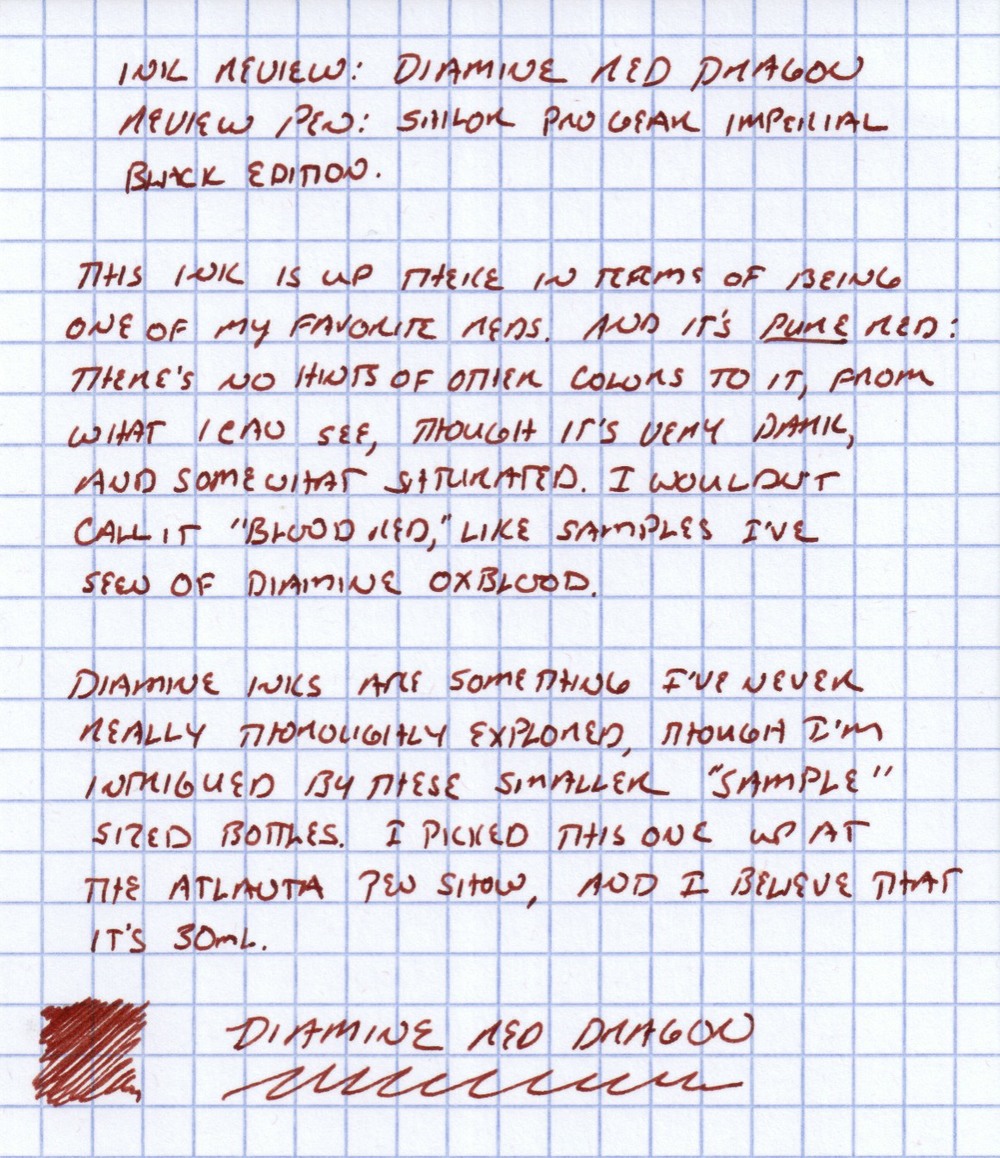 INK REVIEW: DIAMINE RED DRAGON
REVIEW PEN: SAILOR PRO GEAR IMPERIAL
BLACK EDITION.
THIS INK IS UP THERE IN TERMS OF BEING
ONE OF MY FAVORITE REDS. AND IT'S PURE RED:
THERE'S NO HINTS OF OTHER COLORS TO IT, FROM
WHAT I CAN SEE, THOUGH IT'S VERY DARK,
AND SOMEWHAT SATURATED. I WOULDN'T
CALL IT "BLOOD RED," LIKE SAMPLES I'VE
SEEN OF DIAMINE OXBLOOD.
DIAMINE INKS ARE SOMETHING I'VE NEVER
REALLY THOROUGHLY EXPLORED, THOUGH I'M
INTRIGUED BY THESE SMALLER "SAMPLE"
SIZED BOTTLES. I PICKED THIS ONE UP AT
THE ATLANTA PEN SHOW, AND I BELIEVE THAT
IT'S 30mL.
DIAMINE RED DRAGON